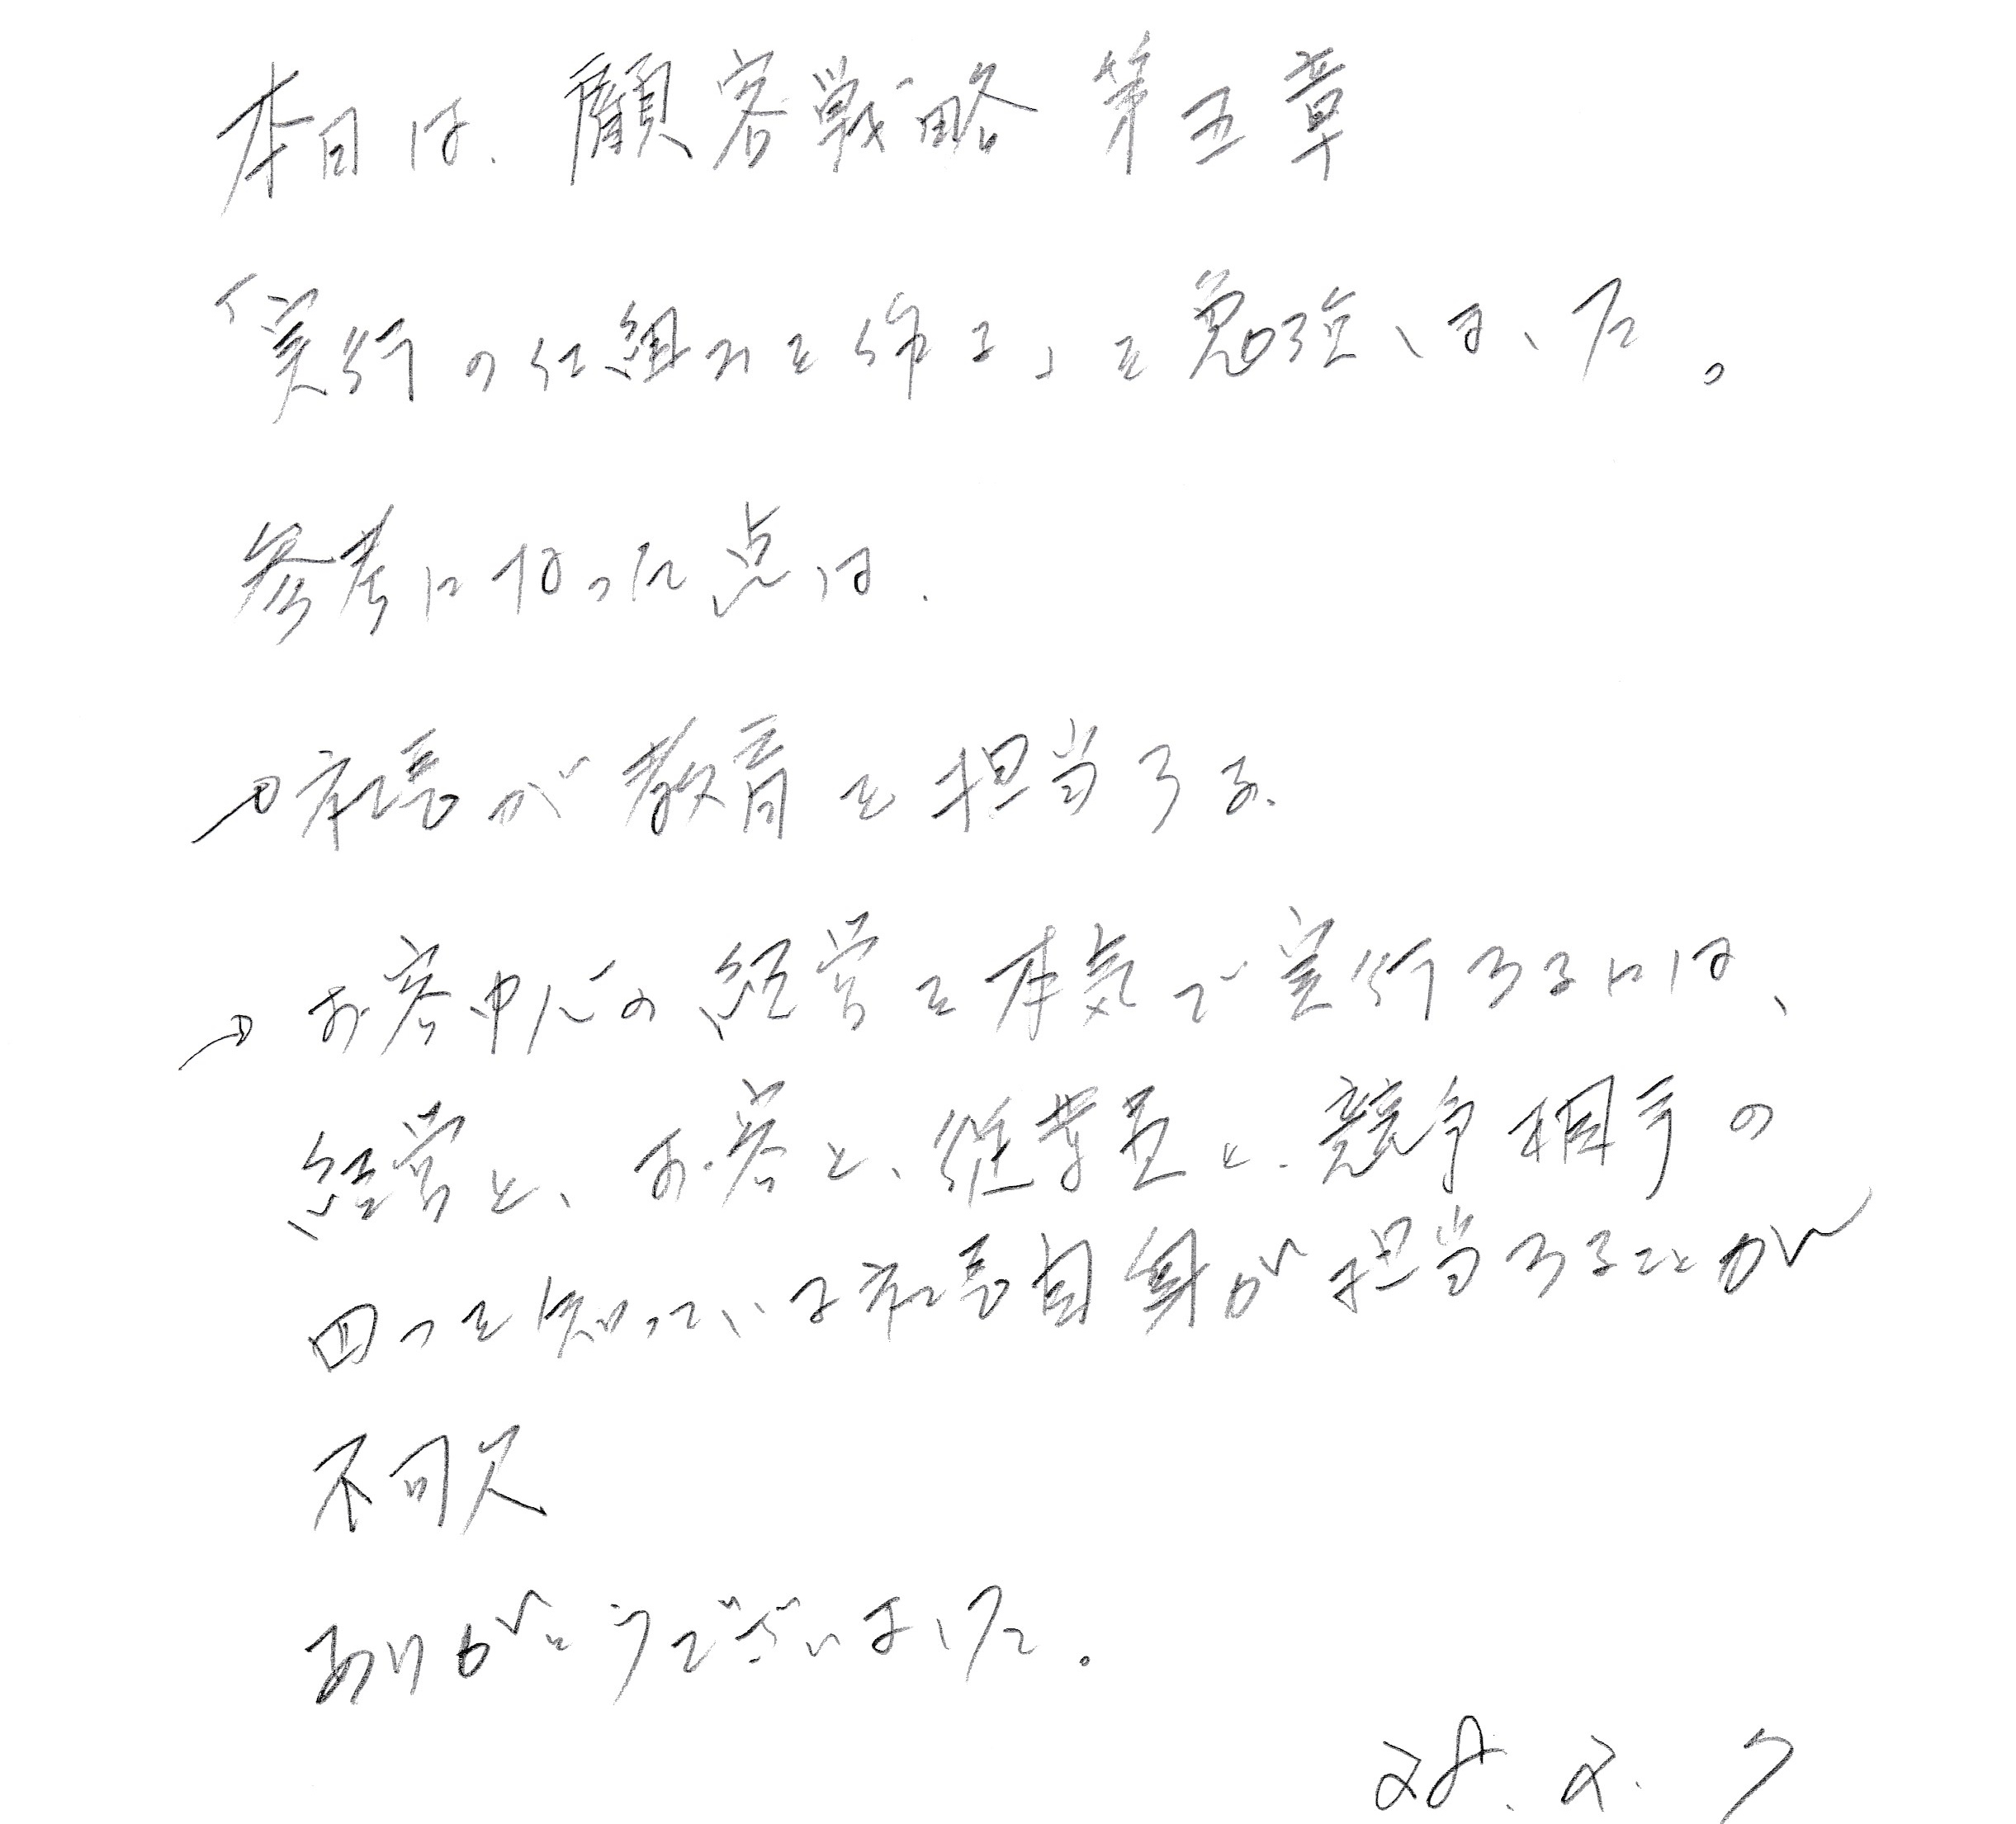 本日は、顧客戦略 第五章
「実行の仕組みを作る」を勉強しました。
参考になった点は、
→社長が教育を担当する。
→お客中心の経営を本気で実行するには、
経営と、お客と、従業員と、競争相手の
四つを知っている社長自身が担当することが
不可欠
ありがとうございました。
28.2.7